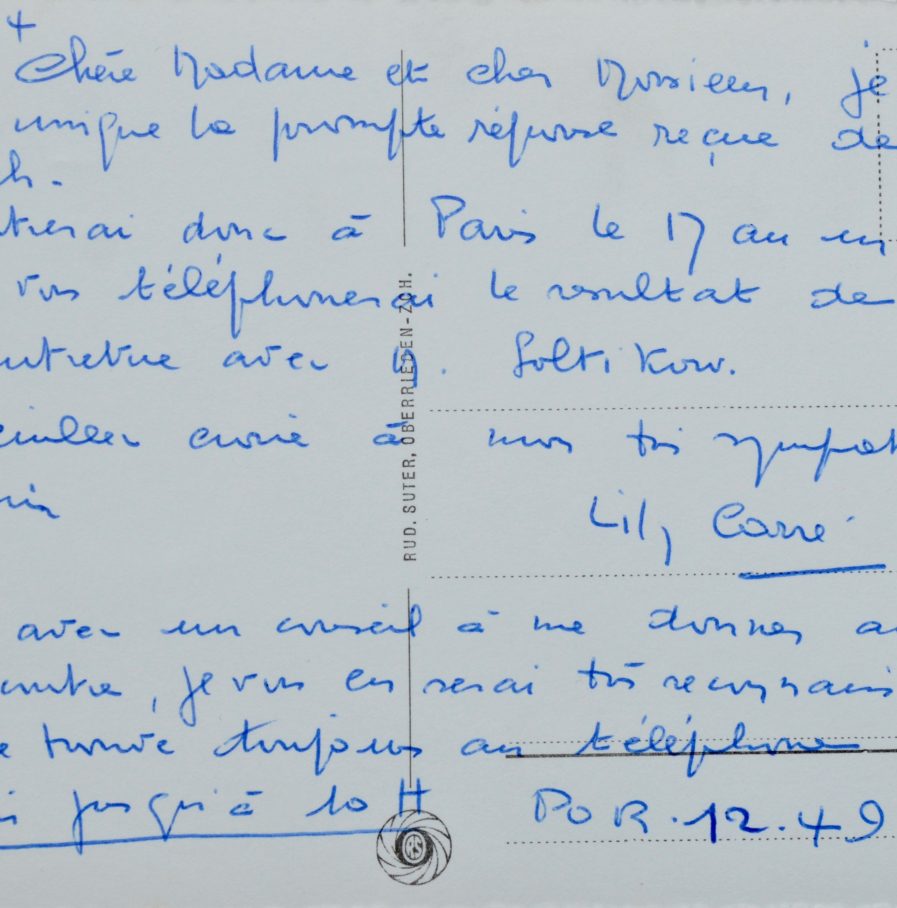 Chère Madame et cher Monsieur, je
unique la prompte réponse reçue de
h.
trerai donc à Paris le 17 au
vous téléphonerai le resultat de
ntretue avec M. Soltikow.
croire à mes très sympat
Lily Carré
avez un conseil à me donner a
contre, je vous en serai très reconnais
e trouve toujours au téléphone
i jusqu'à 10 H POR.12.49
RUD. SUTER, OBERRIEDEN-ZCH.
RS